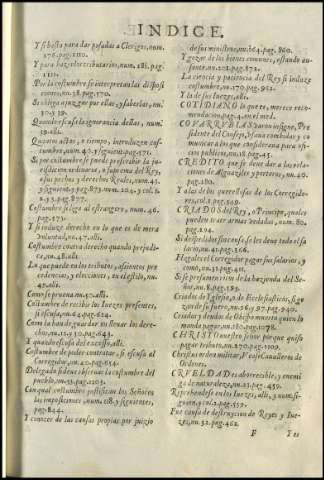 INDICE.
Y si basta para dar posadas a Clerigos, num.
176. pag. 1110.
Y para hazerlos tributarios, num. 181. pag.
1111.
Por la costumbre se interpretan las disposi
ciones, nu. 38. pag. 170.
Si obliga a juzgar por ellas, y saberlas, nu.
30. y 39.
Quando escusa la ignorancia dellas, num.
39. alli.
Quantos actos, o tiempo, introduzen cos-
tumbre, num. 43. y siguiente pag. 171.
Si por costumbre se puede prescribir la ju-
risdicion ordinaria, y suprema del Rey,
a sus pechos y derechos Reales, num. 45.
y siguient. y pag. 873. num. 204. y col. 1.
2. y 3. pag. 877.
Costumbre si liga al estrangero, num. 46.
pag. 173.
Y si induze derecho en lo que es de mera
voluntad, nu. 47. alli.
Costumbre contra derecho quando prejudi-
ca, nu. 48. alli.
La que puede en los tributos, assientos, pre
cedencias, y elecciones, y su estilo, nu.
49. alli.
Como se prueua nu. 50. alli.
Costumbre de recibir los Iuezes presentes,
si escusa, nu. 64. pag. 624.
Como la han de guardar en lleuar los dere-
chos, nu. 22. y 30. pag. 643.
Y quando escusa del excesso, alli.
Costumbre de poder contratar, si escusa al
Corregidor, nu. 40. pag. 654.
Delegado si deue obseruar la costumbre del
pueblo, nu. 25. pag. 1203.
Con qual costumbre justifican los Señores
las imposiciones, num. 118. y siguientes,
pag. 844.
Y conocer de las causas propias por juizio
de sus ministros, nu. 164. pag. 860.
Y gozar de los bienes comunes, estando au-
sentes, nu. 172. pag. 872.
La ciencia y paciencia del Rey si induze
costumbre, nu. 170. pag. 952.
Y la de los Iuezes, alli.
COTIDIANO lo que es, merece reco-
mendacion, pag. 4. nu. 10.
COVARRVBIAS varon insigne, Pre
sidente del Consejo, vsaua combidar y co
municar a los que consideraua para ofi-
cios publicos, nu. 18. pag. 45.
CREDITO que se deue dar a las rela-
ciones de Alguaziles y porteros, nu. 40.
pag. 180.
Y a las de las querellas de los Corregido-
res, col. 2. pag. 508.
CRIADOS del Rey, o Principe, quales
pueden traer armas vedadas, num. 80.
pag. 204.
Si despedidos sin causa, se les deue todo el sa
lario, nu. 41. pag. 166.
Hagales el Corregidor pagar sus salarios, y
como, nu. 23. pag. 411.
Si se presumen ricos de la hazienda del Se-
ñor, nu. 18. pag. 193.
Criados de la Iglesia, o de Eclesiasticos, si go
zan de su fuero, nu. 96. y 97. pag. 940.
Criados y deudos de Obispo muerto quien lo
manda pagar, nu. 180. pag. 1078.
CHRISTO nuestro señor porque quiso
pagar tributo, nu. 370. pag. 1000.
Christus orden militar, Vease Caualleros de
Ordenes.
CRVELDAD es aborrecible, y enemi
ga de naturaleza, nu. 23. pag. 439.
Reprehendese en los Iuezes, alli, y num. si-
guien. y col. 2. pag. 559.
Fue causa de destruycion de Reyes y Iue-
zes, nu. 32. pag. 462.
F
Y es